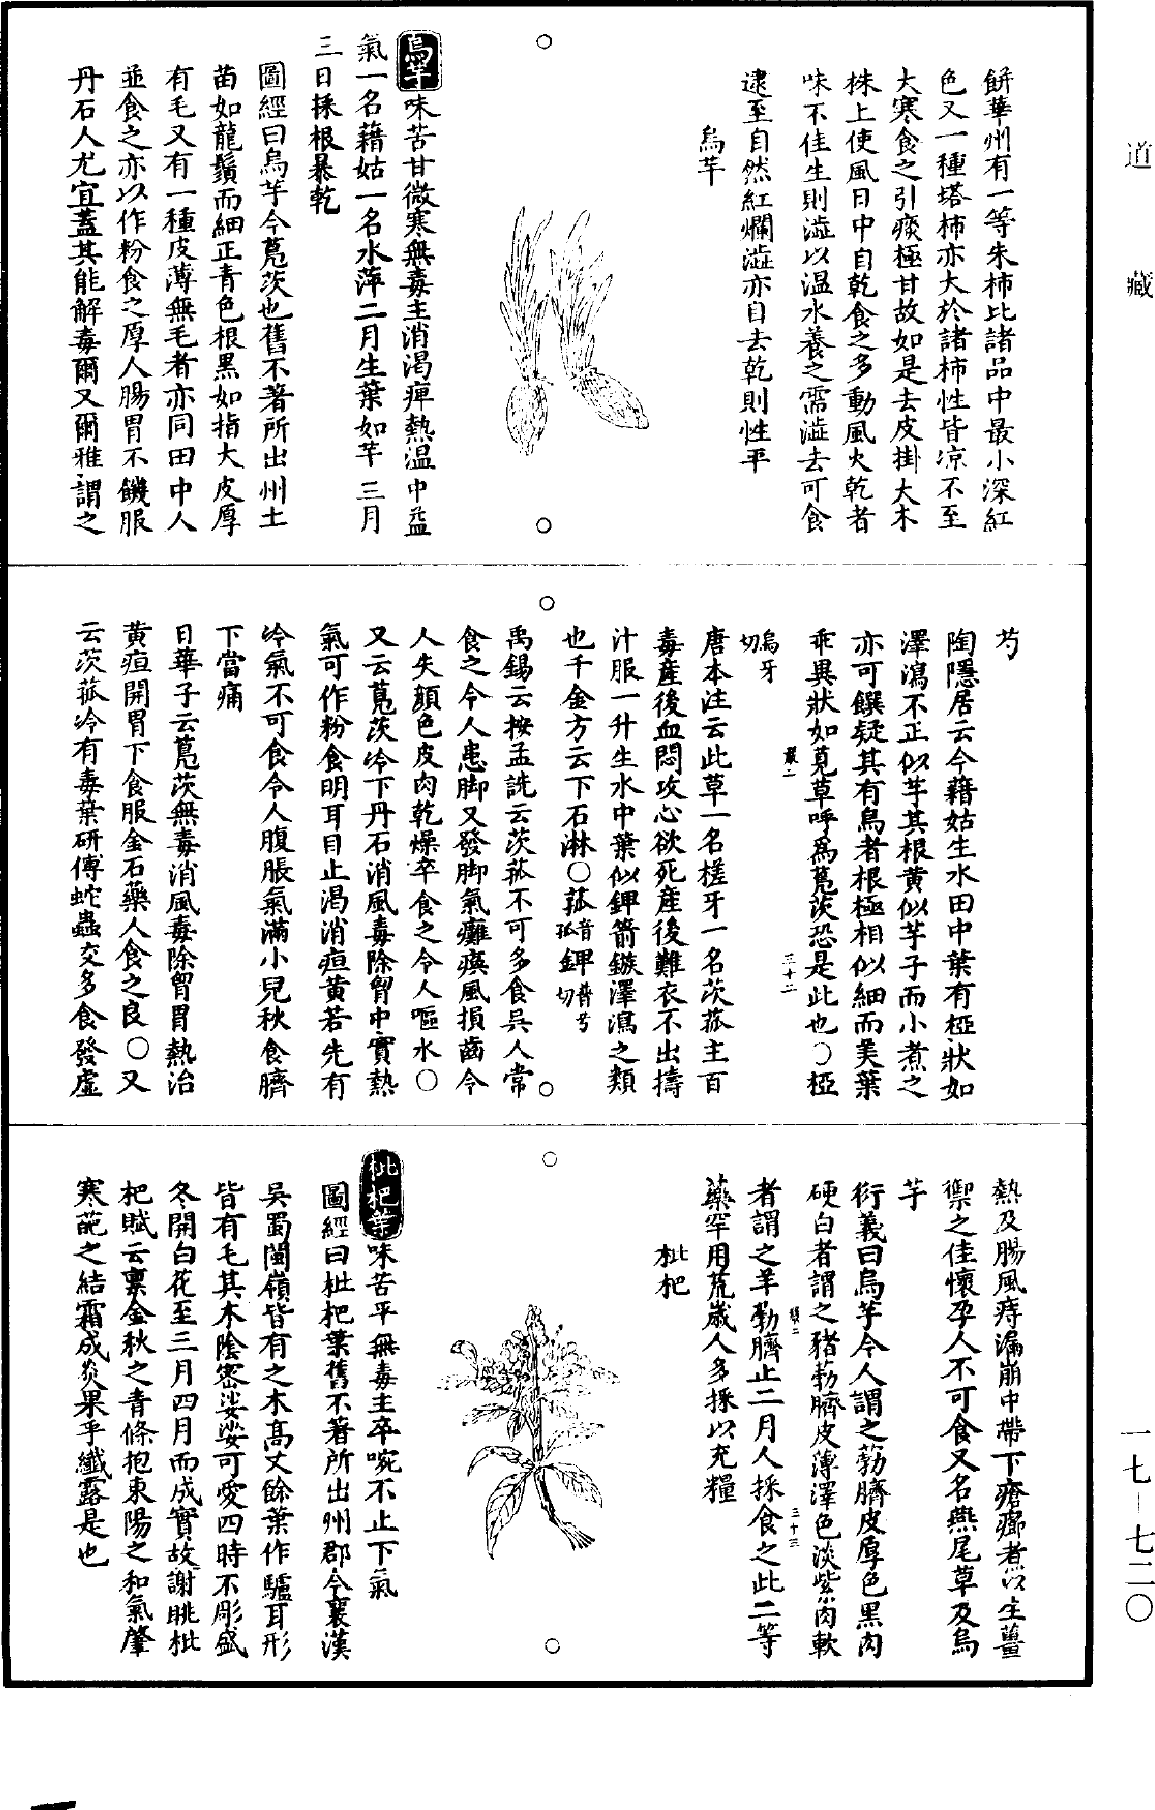 道藏
一七—七二〇
餅華州有一等朱柿比諸品中最小深紅
色又一種塔柿亦大於諸柿性皆凉不至
大寒食之引痰極甘故如是去皮掛大木
株上使風日中自乾食之多動風火乾者
味不佳生則澁以温水養之需澁去可食
逮至自然紅爛澁亦自去乾則性平
烏芋
烏芋味苦甘微寒無毒主消渴痺熱温中益
氣一名藉姑一名水萍二月生葉如芋三月
三日採根暴乾
圖經曰烏芋今鳧茨也舊不著所出州土
苗如龍鬚而細正青色根黑如指大皮厚
有毛又有一種皮薄無毛者亦同田中人
並食之亦以作粉食之厚人腸胃不饑服
丹石人尤宜蓋其能解毒爾又爾雅謂之
芍
陶隱居云今藉姑生水田中葉有椏狀如
澤瀉不正似芋其根黄似芋子而小煮之
亦可饌疑其有烏者根極相似細而美葉
乖異狀如莧草呼為鳧茨恐是此也〇椏
烏牙切
叢二 三十二
唐本注云此草一名槎牙一名茨菰主百
毒産後血悶攻心欲死産後難衣不出擣
汁服一升生水中葉似鉀箭鏃澤瀉之類
也千金方云下石淋〇菰音孤鉀普兮切
禹錫云按孟詵云茨菰不可多食吳人常
食之令人患脚又發脚氣癱瘓風損齒令
人失顏色皮肉乾燥卒食之令人嘔水〇
又云鳧茨冷下丹石消風毒除胷中實熱
氣可作粉食明耳目止渴消疸黄若先有
冷氣不可食令人腹脹氣滿小兒秋食臍
下當痛
日華子云鳧茨無毒消風毒除胷胃熱治
黄疸開胃下食服金石藥人食之良〇又
云茨菰冷有毒葉研傅蛇蟲交多食發虚
熱及腸風痔漏崩中帶下瘡癤煮以生薑
禦之佳懷孕人不可食又名燕尾草及烏
芋
衍義曰烏芋今人謂之葧臍皮厚色黑肉
硬白者謂之豬葧臍皮薄澤色淡紫肉軟
三十三
者謂之羊葧臍止二月人採食之此二等
藥罕用荒歲人多採以充糧
枇杷
枇杷葉味苦平無毒主卒啘不止下氣
圖經曰枇杷葉舊不著所出州郡今襄漢
吳蜀閩嶺皆有之木高丈餘葉作驢耳形
皆有毛其木陰密娑娑可愛四時不彫盛
冬開白花至三月四月而成實故謝眺枇
杷賦云稟金秋之青條抱東陽之和氣肇
寒葩之結霜成炎果乎纖露是也